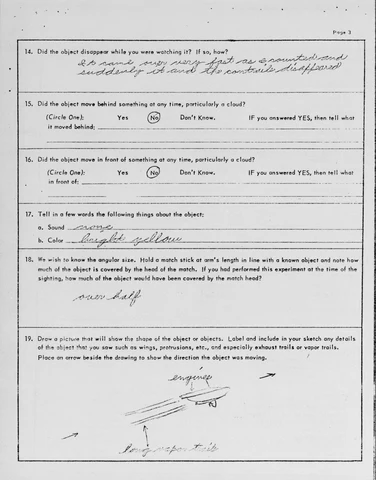 Page 3
14. Did the object disappear while you were watching it? If so, how?
It came over very fast as I counted and
suddenly it and the contrails disappeared
15. Did the object move behind something at any time, particularly a cloud?
(Circle One): Yes No Don't Know. IF you answered YES, then tell what
it moved behind:
16. Did the object move in front of something at any time, particularly a cloud?
(Circle One): Yes No Don't Know. IF you answered YES, then tell what
in front of:
17. Tell in a few words the following things about the object:
a. Sound none
b. Color bright yellow
18. We wish to know the angular size. Hold a match stick at arm's length in line with a known object and note how
much of the object is covered by the head of the match. If you had performed this experiment at the time of the
sighting, how much of the object would have been covered by the match head?
over half
19. Draw a picture that will show the shape of the object or objects. Label and include in your sketch any details
of the object that you saw such as wings, protrusions, etc., and especially exhaust trails or vapor trails.
Place an arrow beside the drawing to show the direction the object was moving.
engines
long vapor trails